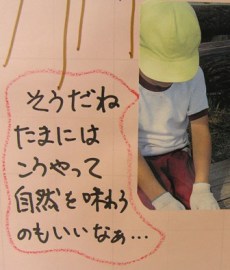 そうだね
たまには
こうやって
自然を味わう
のもいいなぁ…